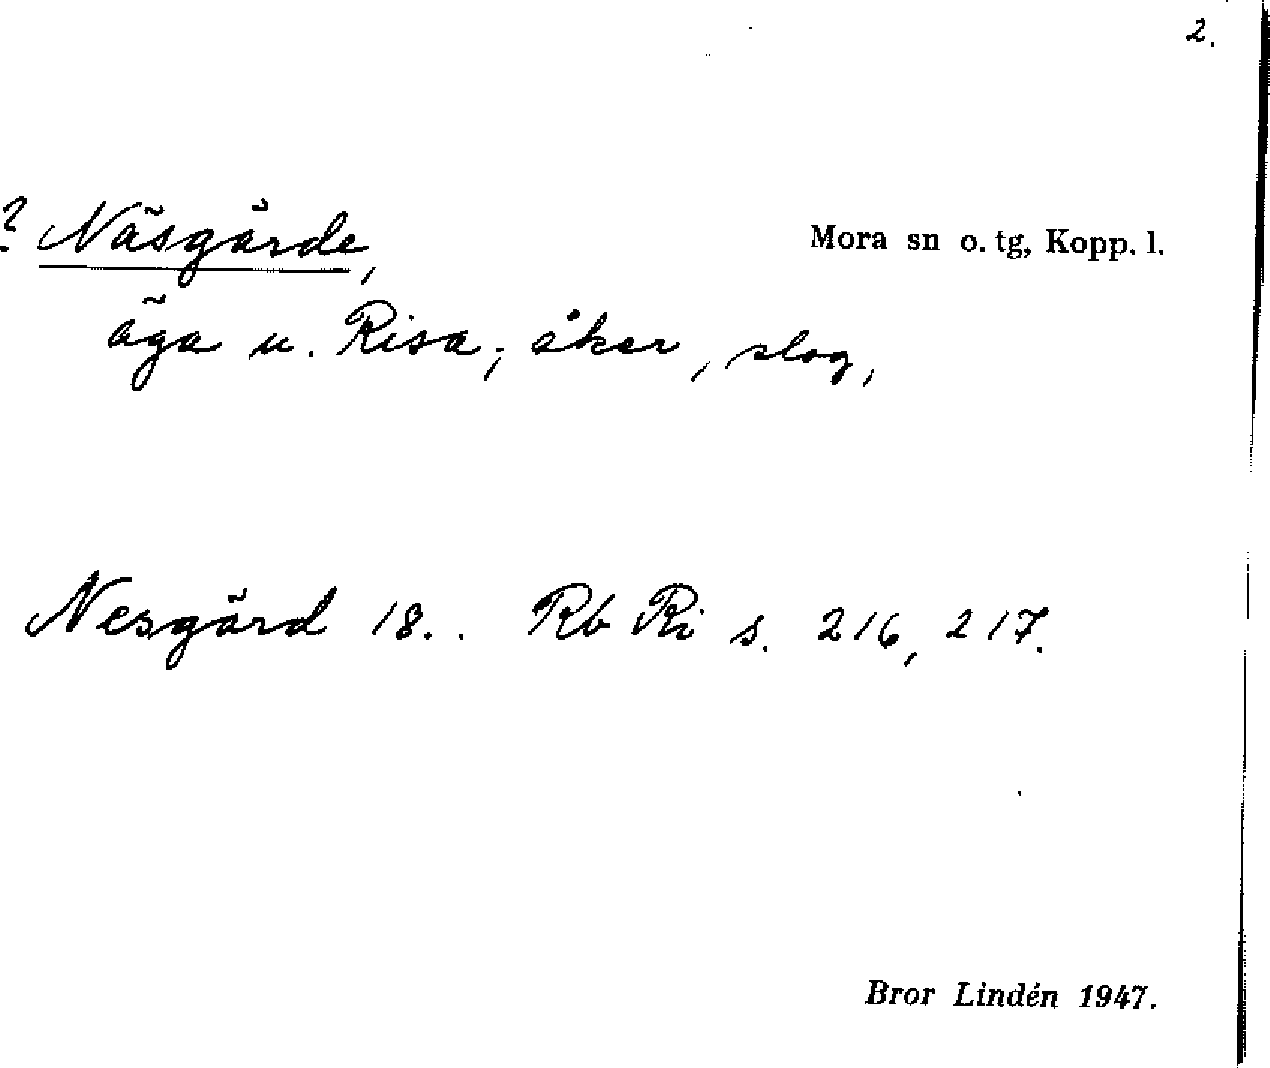 2.
? Näsgärde, Mora sn o. tg, Kopp. l.
äga u. Risa; åker, slog,
Nesgärd 18.. Rb Ri s. 216, 217.
Bror Lindén 1947.